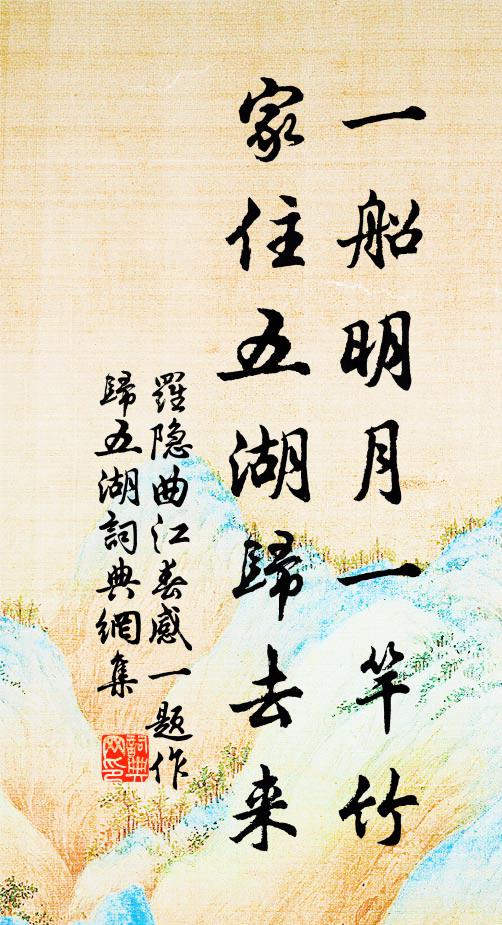 一船明月一竿竹
家住五湖歸去来
羅隐曲江春感一题作
歸五湖詞典網集
詞典网印